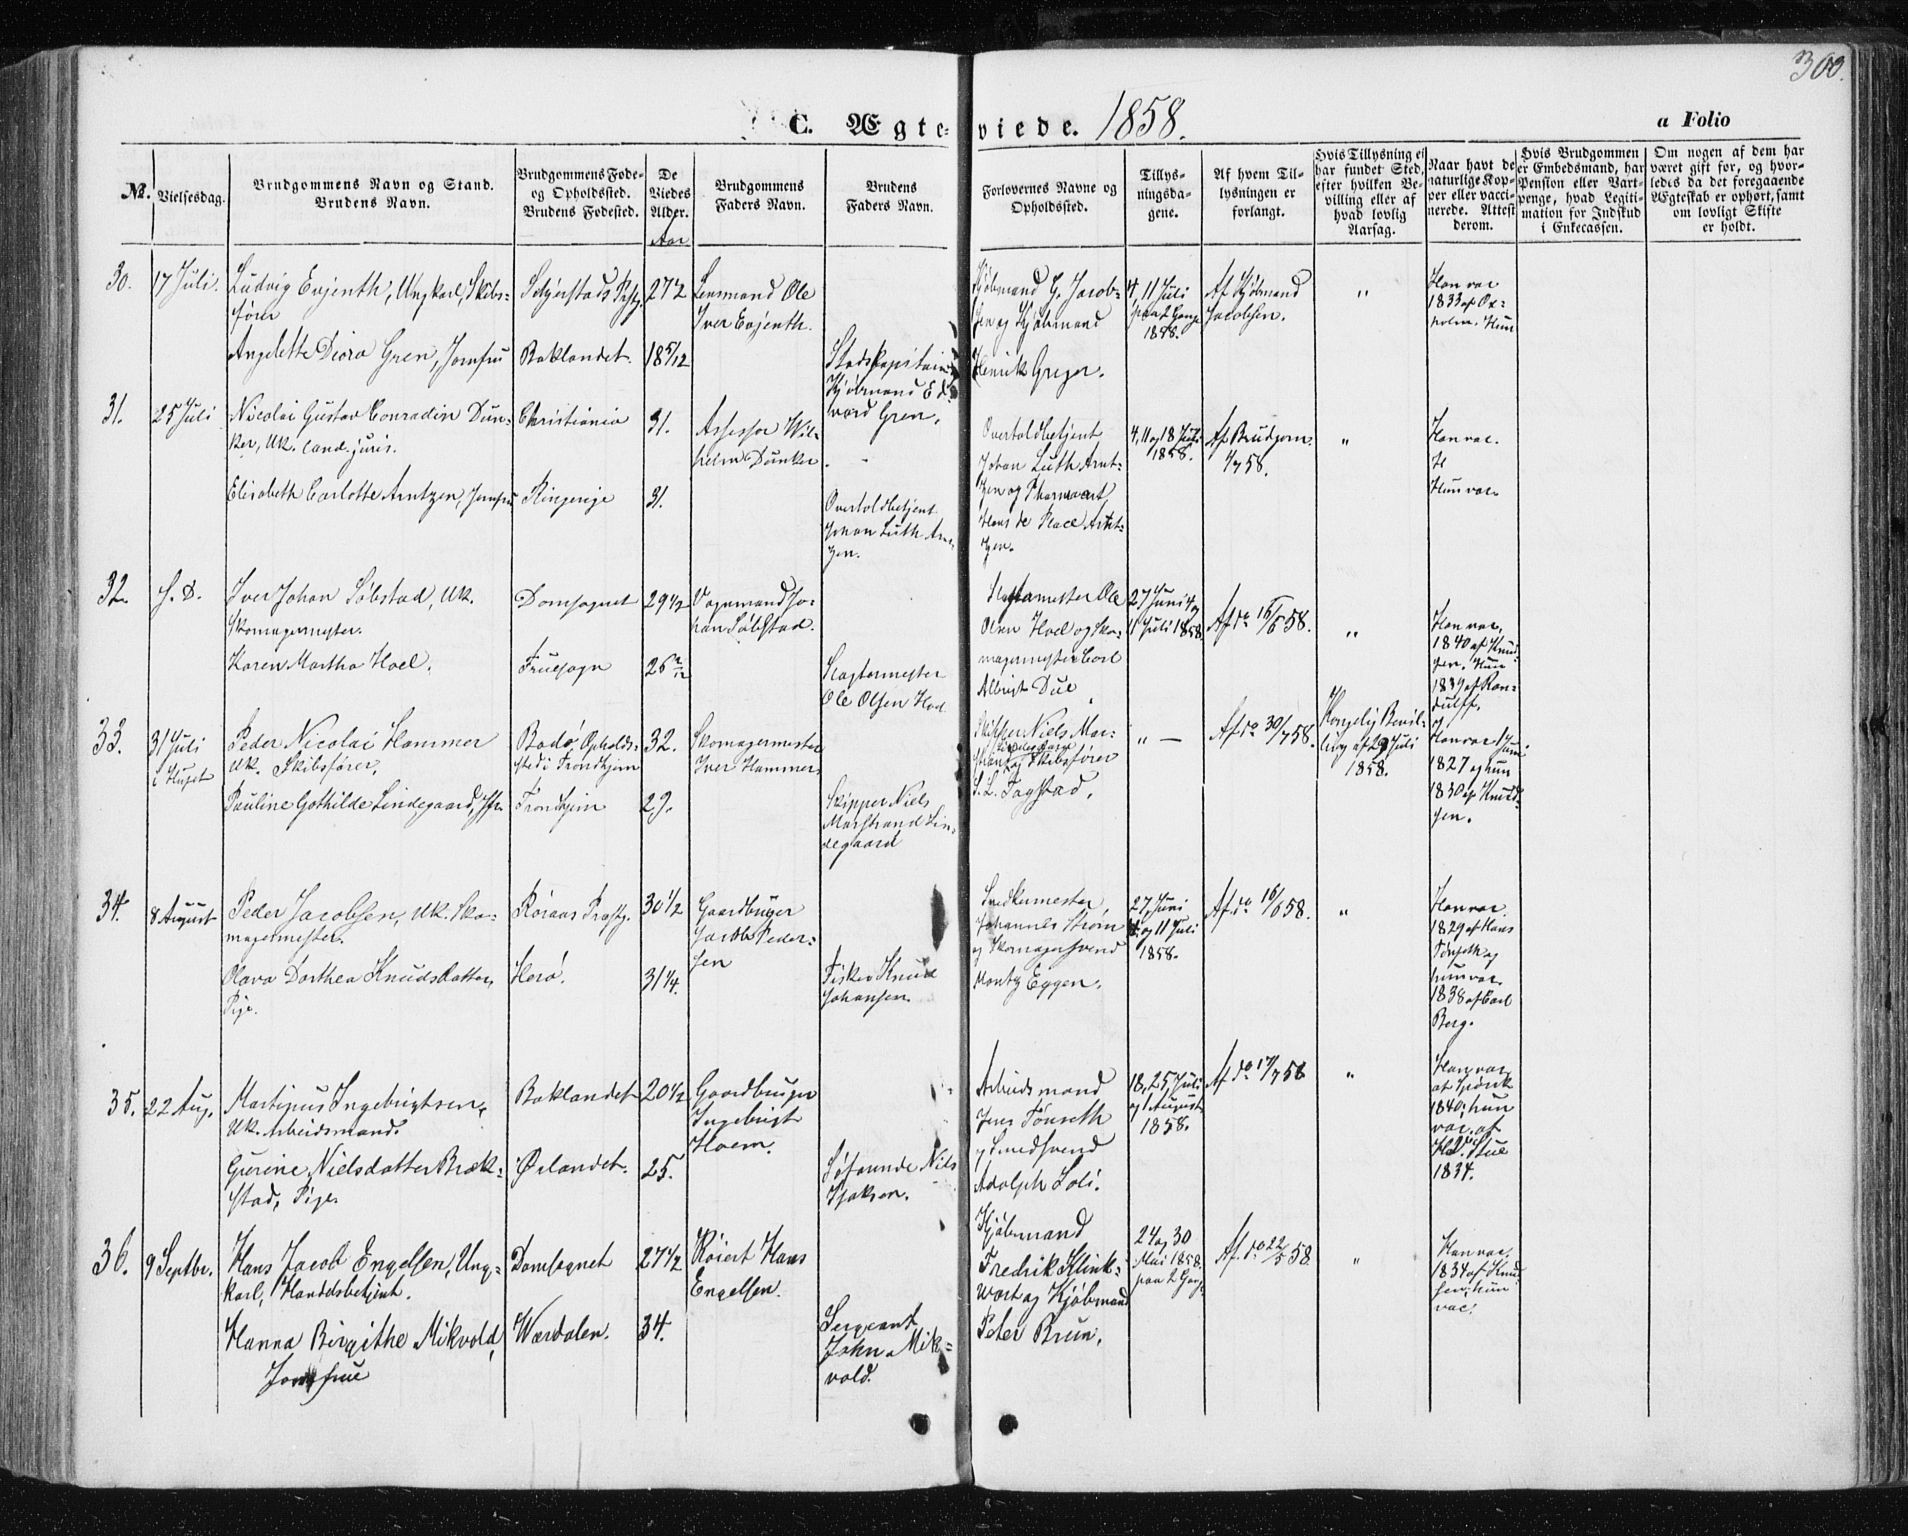 300.
C. Ægteviede. 1858.
a Folio
No. Vielsesdag.
Brudgommens Navn og Stand.
Brudens Navn.
Brudgommens Føde-
og Opholdssted.
Brudens Fødested.
De
Viedes
Alder.
Aar
Brudgommens
Faders Navn.
Brudens
Faders Navn.
Forlovernes Navne og
Opholdssted.
Tillys-
ningsda-
gene.
Af hvem Til-
lysningen er
forlangt.
Hvis Tillysning ei
har fundet Sted,
efter hvilken Be-
villing eller af
hvad lovlig
Aarsag.
Naar havt de
naturlige Kop-
per eller vacci-
nerede. Attest
derom.
Hvis Brudgommen
er Embedsmand, har
Pension eller Vart-
penge, hvad Legiti-
mation for Indskud
i Enkecassen.
Om nogen af dem har
været gift før, og hvor-
ledis da det foregaaende
Ægteskab er ophørt, samt
om lovligt Skifte
er holdt.
30.
17 Juli.
Ludvig Evjenth, Ungkarl, Skibs-
fører
Angelette Diora Gren, Jomfru
Baklandet.
27 1/2
18 5/12
Lensmand Ole
Iver Evjenth.
Kjøbmand Ed-
vard Gren.
Kjøbmand G. Jacob-
sen og Kjøbmand
Henrik Greger.
4, 11 Juli
paa 2 Gange
1858.
Af Kjøbmand
Jacobsen.
"
Han vac
1833 af
Hun
31.
25 Juli
Nicolai Gustav Conradin Dun-
ker, Uk. Cand. juris.
Elisabeth Carlotte Arntzen, Jomfru
Christiania
Ringerige
31.
31.
Assessor Wil-
helm Dunker
Overtoldbetjent
Johan Luth Arn-
zen.
Overtoldbetjent
Johan Luth Arnt-
zen og
Hans de Place Arnt-
zen.
4, 11 og 18 Juli
1858.
Af Brudgom.
1/7 58.
"
Han vac.
Hun vac.
32.
S. D.
Iver Johan Søbstad, Uk.
Skomagermester.
Karen Martha Hoel.
Domsognet
Fruesogn
29 1/2
Vognmand Jo-
han Søbstad.
Slagtermester
Ole Olsen Hoel
Slagtermester Ole
Olsen Hoel og Sko-
magermester Carl
Albrigt Due
27 Juni 4 og
11 Juli 1858
Af do 16/6 58.
"
Han vac.
1840 af Knud-
sen. Hun
1839 af Ran-
dulff.
33.
31 Juli
i Huset
Peder Nicolai Hammer
Uk. Skibsfører.
Pauline Gothilde Lindegaard, Jfr.
Bodø, Opholds-
sted i Trondhjem
Trondhjem
32.
29.
Skomagermester
Iver Hammer
Skipper Niels
Marstrand Lin-
degaard
Skipper Niels Mar-
strand
Lindegaard
og Skibsfører
S. L. Fagstad.
" —
Af do 30/7 58.
Kongelig Bevil-
ling af 29 Juli
1858.
Han vac
1827 og hun
1830 af Knud-
sen.
34.
8 August
Peder Jacobsen, Uk. Sko-
magermester.
Olava Dorthea Knudsdatter,
Pige.
Røraas Præstg.
Herø.
30 1/2
31 1/4.
Gaardbruger
Jacob Peder-
sen
Fisker Knud
Johansen.
Snedkermester
Johannes Strøm
og Skomagersvend
Eggen.
27, Juni
4 og 11 Juli
1858.
Af do 16/6 58.
"
Han vac.
1829 af Hans
Tønseth og
hun vac.
1838 af Carl
Berg.
35.
22 Aug.
Martinus Ingebrigtsen,
Uk. Arbeidsmand.
Gurine Nielsdatter Bræk-
stad, Pige.
Baklandet
Ørlandet.
20 1/2
25.
Gaardbruger
Ingebrigt
Hoem.
Niels
Isaksen.
Arbeidsmand
Jens Tønseth
og Smedsvend
Adolph Loli.
18, 25, Juli
og 1 August
1858.
Af do 17/7 58
"
Han vac.
af
1840; hun
vac. af
Stue
1834.
36.
9 Septbr.
Hans Jacob Engelsen, Ung-
karl, Handelsbetjent.
Hanna Birgithe Mikvold,
Jomfrue
Domsognet
Værdalen.
27 1/2
34.
Røiert Hans
Engelsen.
Sergeant
John Mik-
vold.
Kjøbmand
Fredrik Klink-
wort og Kjøbmand
Peter Brun.
24 og 30
Mai 1858.
paa 2 Gang.
Af do 22/5 58.
"
Han vac.
1834 af Knud-
sen; hun
vac.